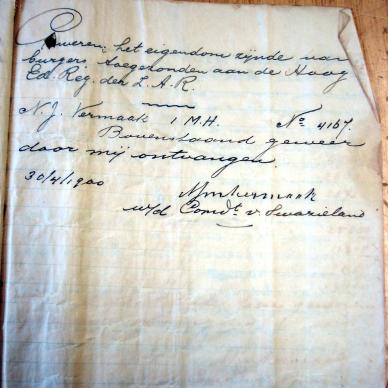 Geweren, het eigendom zijnde van
burgers, toegezonden aan de Hoog
Ed. Reg. der Z. A. R.
N. J. Vermaak 1 M.H. No 4167.
Bovenstaand geweer
door mij ontvangen.
30/4/1900
Vermaak
w/d Comdt v. Swazieland